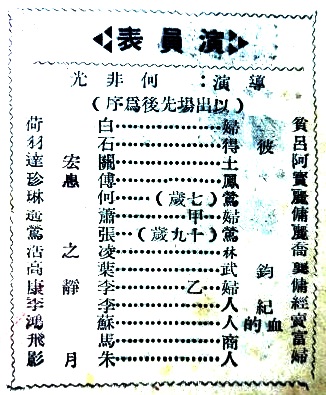 演員表
導演：何非光
（以出場先後爲序）
貧婦……白荷
呂彼得……石羽
阿土……關宏達
寶鳳……傅惠珍
麗鶯（七歲）……何琳
傭婦甲……蕭
麗鶯（十九歲）……張鶯
喬林……凌之浩
龔鈞武……葉高
傭婦乙……李靜康
經紀人……李李
賣血的人……蘇鴻
富商……馬飛
婦人……朱月影